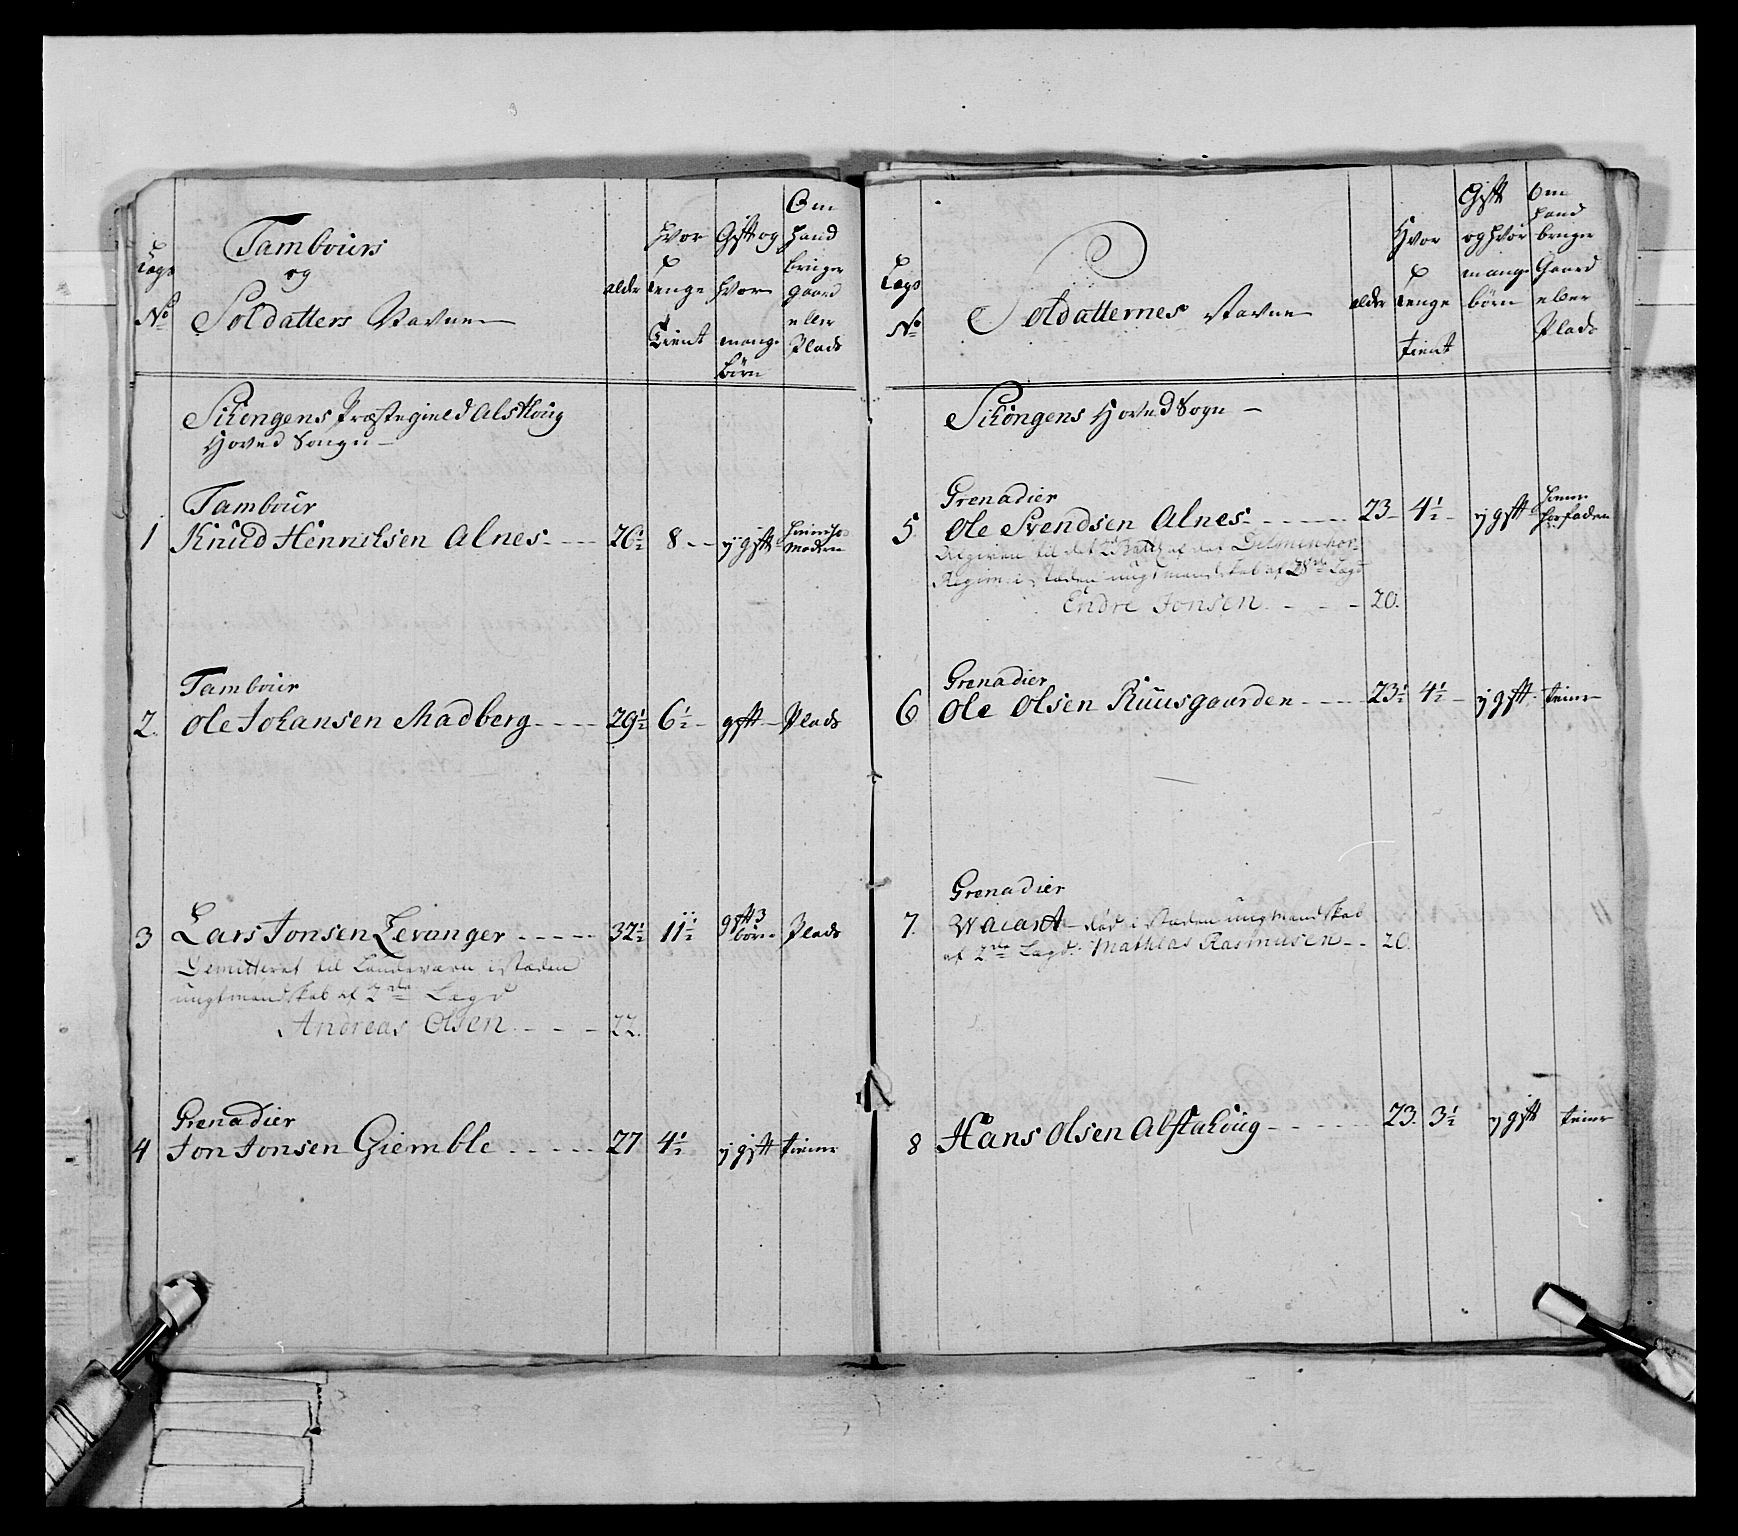 Lægs
No
Tambours
og
Soldatters Navne
alder
Hvor
Lenge
Tient
Gift og
hvor
mange
børn
Om
hand
bruger
gaard
eller
Plads
Schongens Præstegield Alsthoug
Hoved Songn
Tambour
1 Knud Henrichsen Alnes - - - 26½ 8 - - ygift
Modern
Tambour
2. Ole Johansen Madberg - - - - 29½ 6½ - gift - Plads
3 Lars Jonsen Levanger - - - - - 32½ 11½ gift 3 børn Plads
Demitteret til Landeværn i stæden
ungtmandskab af 2de Lægd
Andreas Olsen - - - - 22.
Grenadier
4 Jon Jonsen Giemble - - - - - 27 4½ ygift tiener
Lægs
No
Soldatternes Navne
alder
Hvor
Lenge
tient
Gift
og hvor
mange
børn
Om
hand
bruger
Gaard
eller
Plads
Schongens Hoved Sogn -
Grenadier
5. Ole Svendsen Alnes - - - - - - 23 - 4½ - ygift
Faderen
til det 2d Batt. af det
Regim: i stæden ungtmandskab af 28de Lægd
Endre Jonsen - - - - 20.
Grenadier
6 Ole Olsen Ruusgaarden - - - - 23½ 4½ - ygift - tiener
Grenadier
7. Wacant - død i stæden ungmandskab
af 2de Lægd: Mathias Rasmusen - - 20.
8 Hans Olsen Alstahoug - - - - - - 23. 3½ ygift tiener